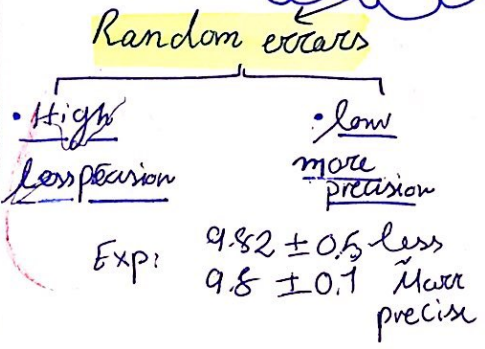 Random errors
• High
less precision
• low
more
precision
Exp: 9.82 ± 0.5 less
9.8 ± 0.1 More
precise